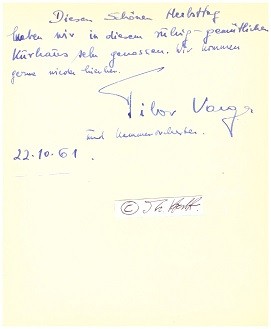 Diesen schönen Herbsttag
haben wir in diesem ruhig-gemütlichen
Kurhaus sehr genossen. Wir kommen
gerne wieder hierher.
Tibor Varga
und Kammerorchester.
22.10.61.
©